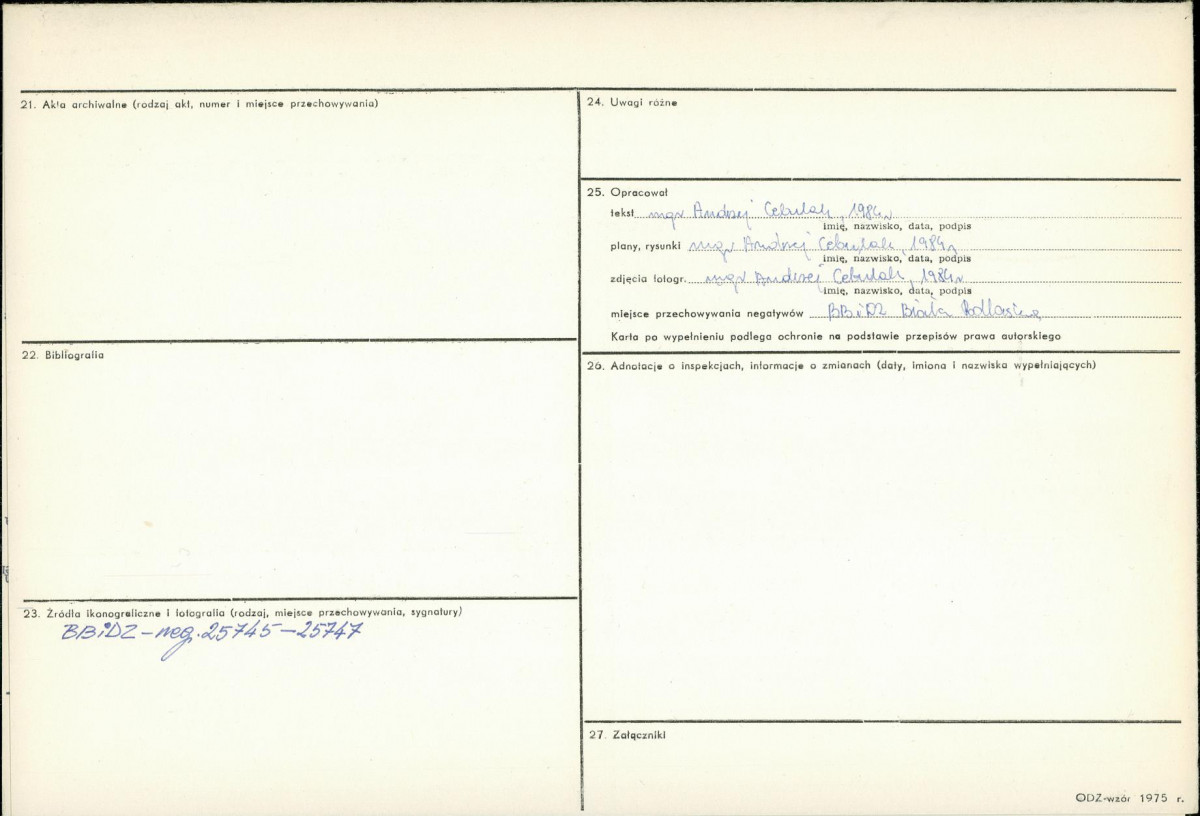 21. Akta archiwalne (rodzaj akt, numer i miejsce przechowywania)
22. Bibliografia
23. Źródła ikonograficzne i fotografia (rodzaj, miejsce przechowywania, sygnatury)
BBiDZ – neg. 25745 – 25747
24. Uwagi różne
25. Opracował
tekst mgr Andrzej Cebulak, 1984r
imię, nazwisko, data, podpis
plany, rysunki mgr Andrzej Cebulak, 1984r
imię, nazwisko, data, podpis
zdjęcia fotogr. mgr Andrzej Cebulak, 1984r
imię, nazwisko, data, podpis
miejsce przechowywania negatywów BBiDZ Biała Podlaska
Karta po wypełnieniu podlega ochronie na podstawie przepisów prawa autorskiego
26. Adnotacje o inspekcjach, informacje o zmianach (daty, imiona i nazwiska wypełniających)
27. Załączniki
ODZ-wzór 1975 r.